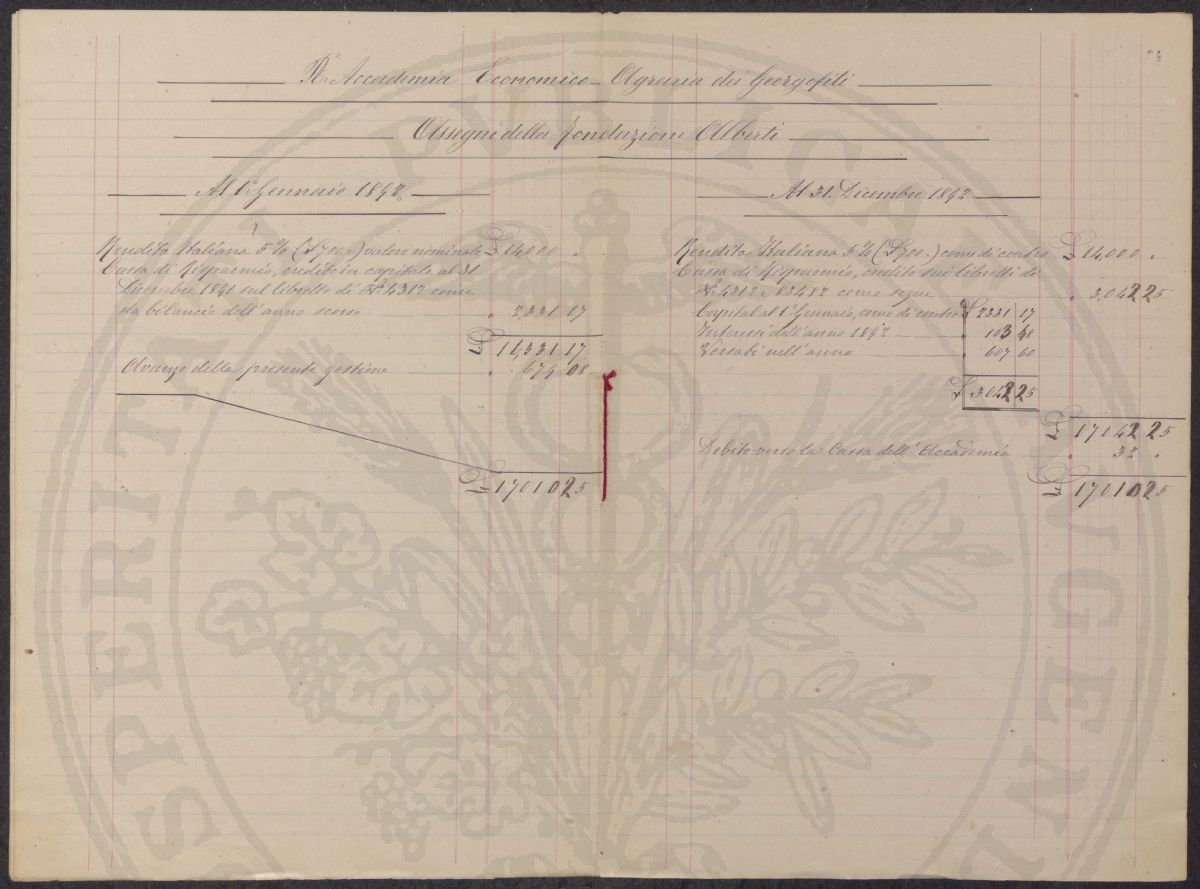 R.ª Accademia Economico-Agraria dei Georgofili
Assegni della Fondazione Alberti
Al 1º Gennaio 1892
Rendita Italiana 5% (£ 700.-) valore nominale £ 14,000 "
Cassa di Risparmio, credito in capitale al 31
Dicembre 1891 sul libretto di Nº 4312 come
da bilancio dell'anno scorso " 2,331 17
£ 16,331 17
Avanzo della presente gestione " 679 08
£ 17010 25
Al 31. Dicembre 1892
Rendita Italiana 5% (£ 700.-) come di contro £ 14,000 "
Cassa di Risparmio, credito sui libretti di
Nº 4312 e 83482 come segue " 3,042 25
Capital al 1º Gennaio, come di contro £ 2331 17
Interessi dell'anno 1892 " 103 48
Versati nell'anno " 607 60
£ 3042 25
£ 17042 25
Debito verso la Cassa dell'Accademia " 32 "
£ 17010 25
SPERITA I PVBLICAE VGEN